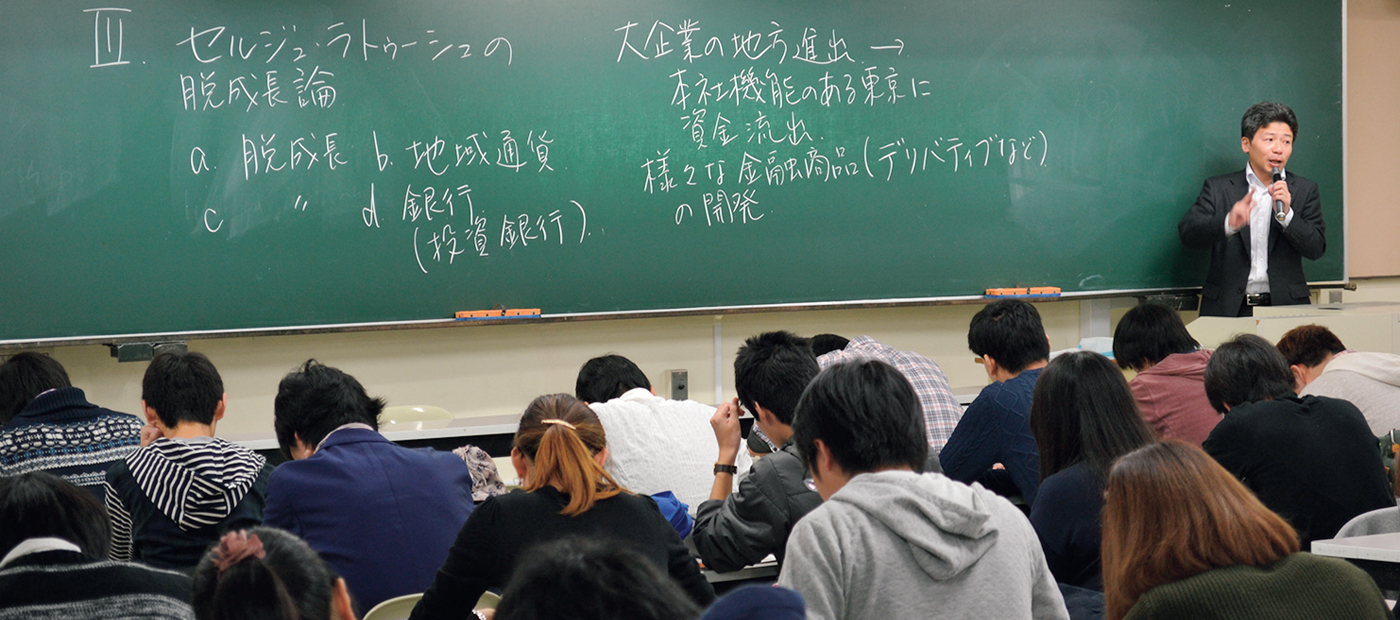 III. セルジュ・ラトゥーシュの
脱成長論
a. 脱成長 b. 地域通貨
c 〃 d. 銀行
(投資銀行).
大企業の地方進出 →
本社機能のある東京に
資金流出.
様々な金融商品(デリバティブなど)
の開発.